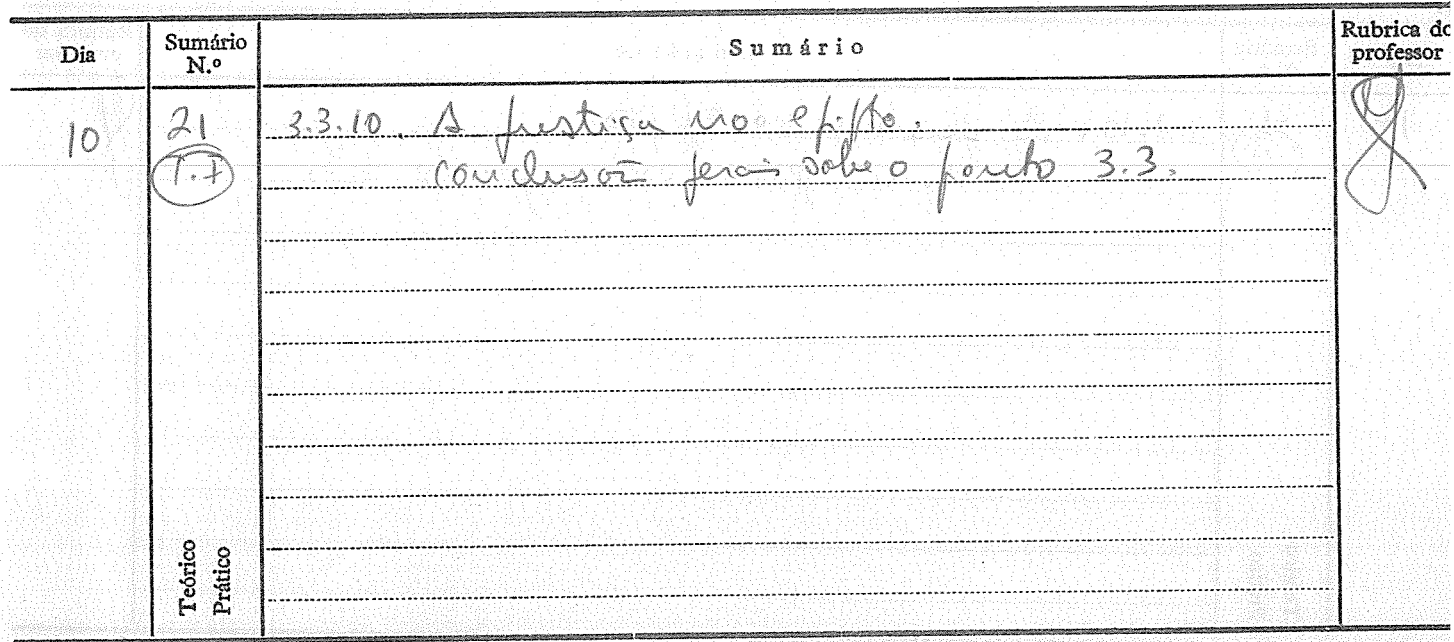 Dia Sumário N.º Sumário Rubrica do professor
10 21 3.3.10. A justiça no egipto.
conclusões gerais sobre o ponto 3.3.
Teórico
Prático